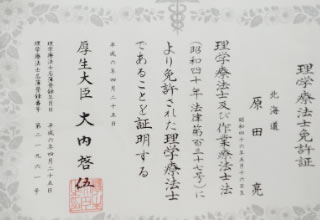 理学療法士免許証
北海道
原田 亮
昭和四十六年五月十三日生
理学療法士及び作業療法士法
(昭和四十年 法律第百三十七号)に
より免許された理学療法士
であることを証明する
平成六年四月二十五日
厚生大臣 大内啓伍
理学療法士名簿登録年月日 平成六年四月二十五日
理学療法士名簿登録番号